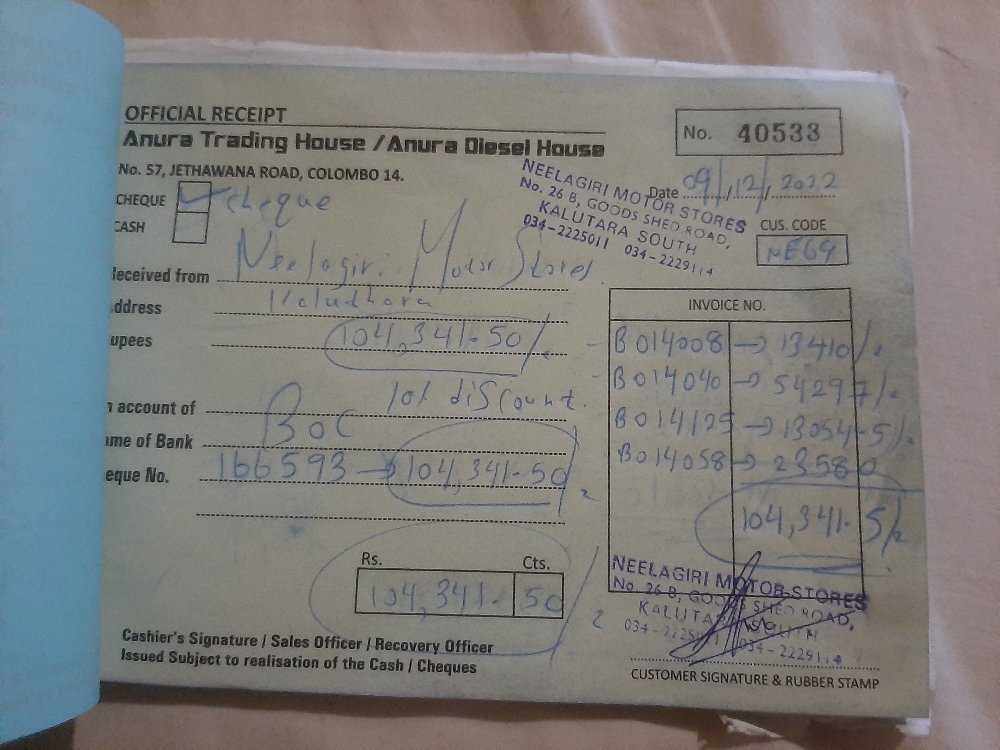 OFFICIAL RECEIPT
Anura Trading House / Anura Diesel House
No. 57, JETHAWANA ROAD, COLOMBO 14.
No. 40533
Date 09/12/2022
NEELAGIRI MOTOR STORES
No. 26 B, GOODS SHED ROAD,
KALUTARA SOUTH
034-2225011 034-2229114
CUS. CODE
NE69
CHEQUE cheque
CASH
eceived from Neelagiri Motor Stores
ddress
upees 104,341-50/
10% discount.
account of
me of Bank BOC
eque No. 166593 → 104,341-50
INVOICE NO.
B 014008 → 13410/
B 014040 → 54297/
B 014125 → 13054-5/
B 014058 → 23580
104,341. 5/
Rs. Cts.
104,341- 50
Cashier's Signature / Sales Officer / Recovery Officer
Issued Subject to realisation of the Cash / Cheques
NEELAGIRI MOTOR STORES
No. 26 B, GOODS SHED ROAD,
KALUTARA SOUTH
034-2225011 034-2229114
CUSTOMER SIGNATURE & RUBBER STAMP